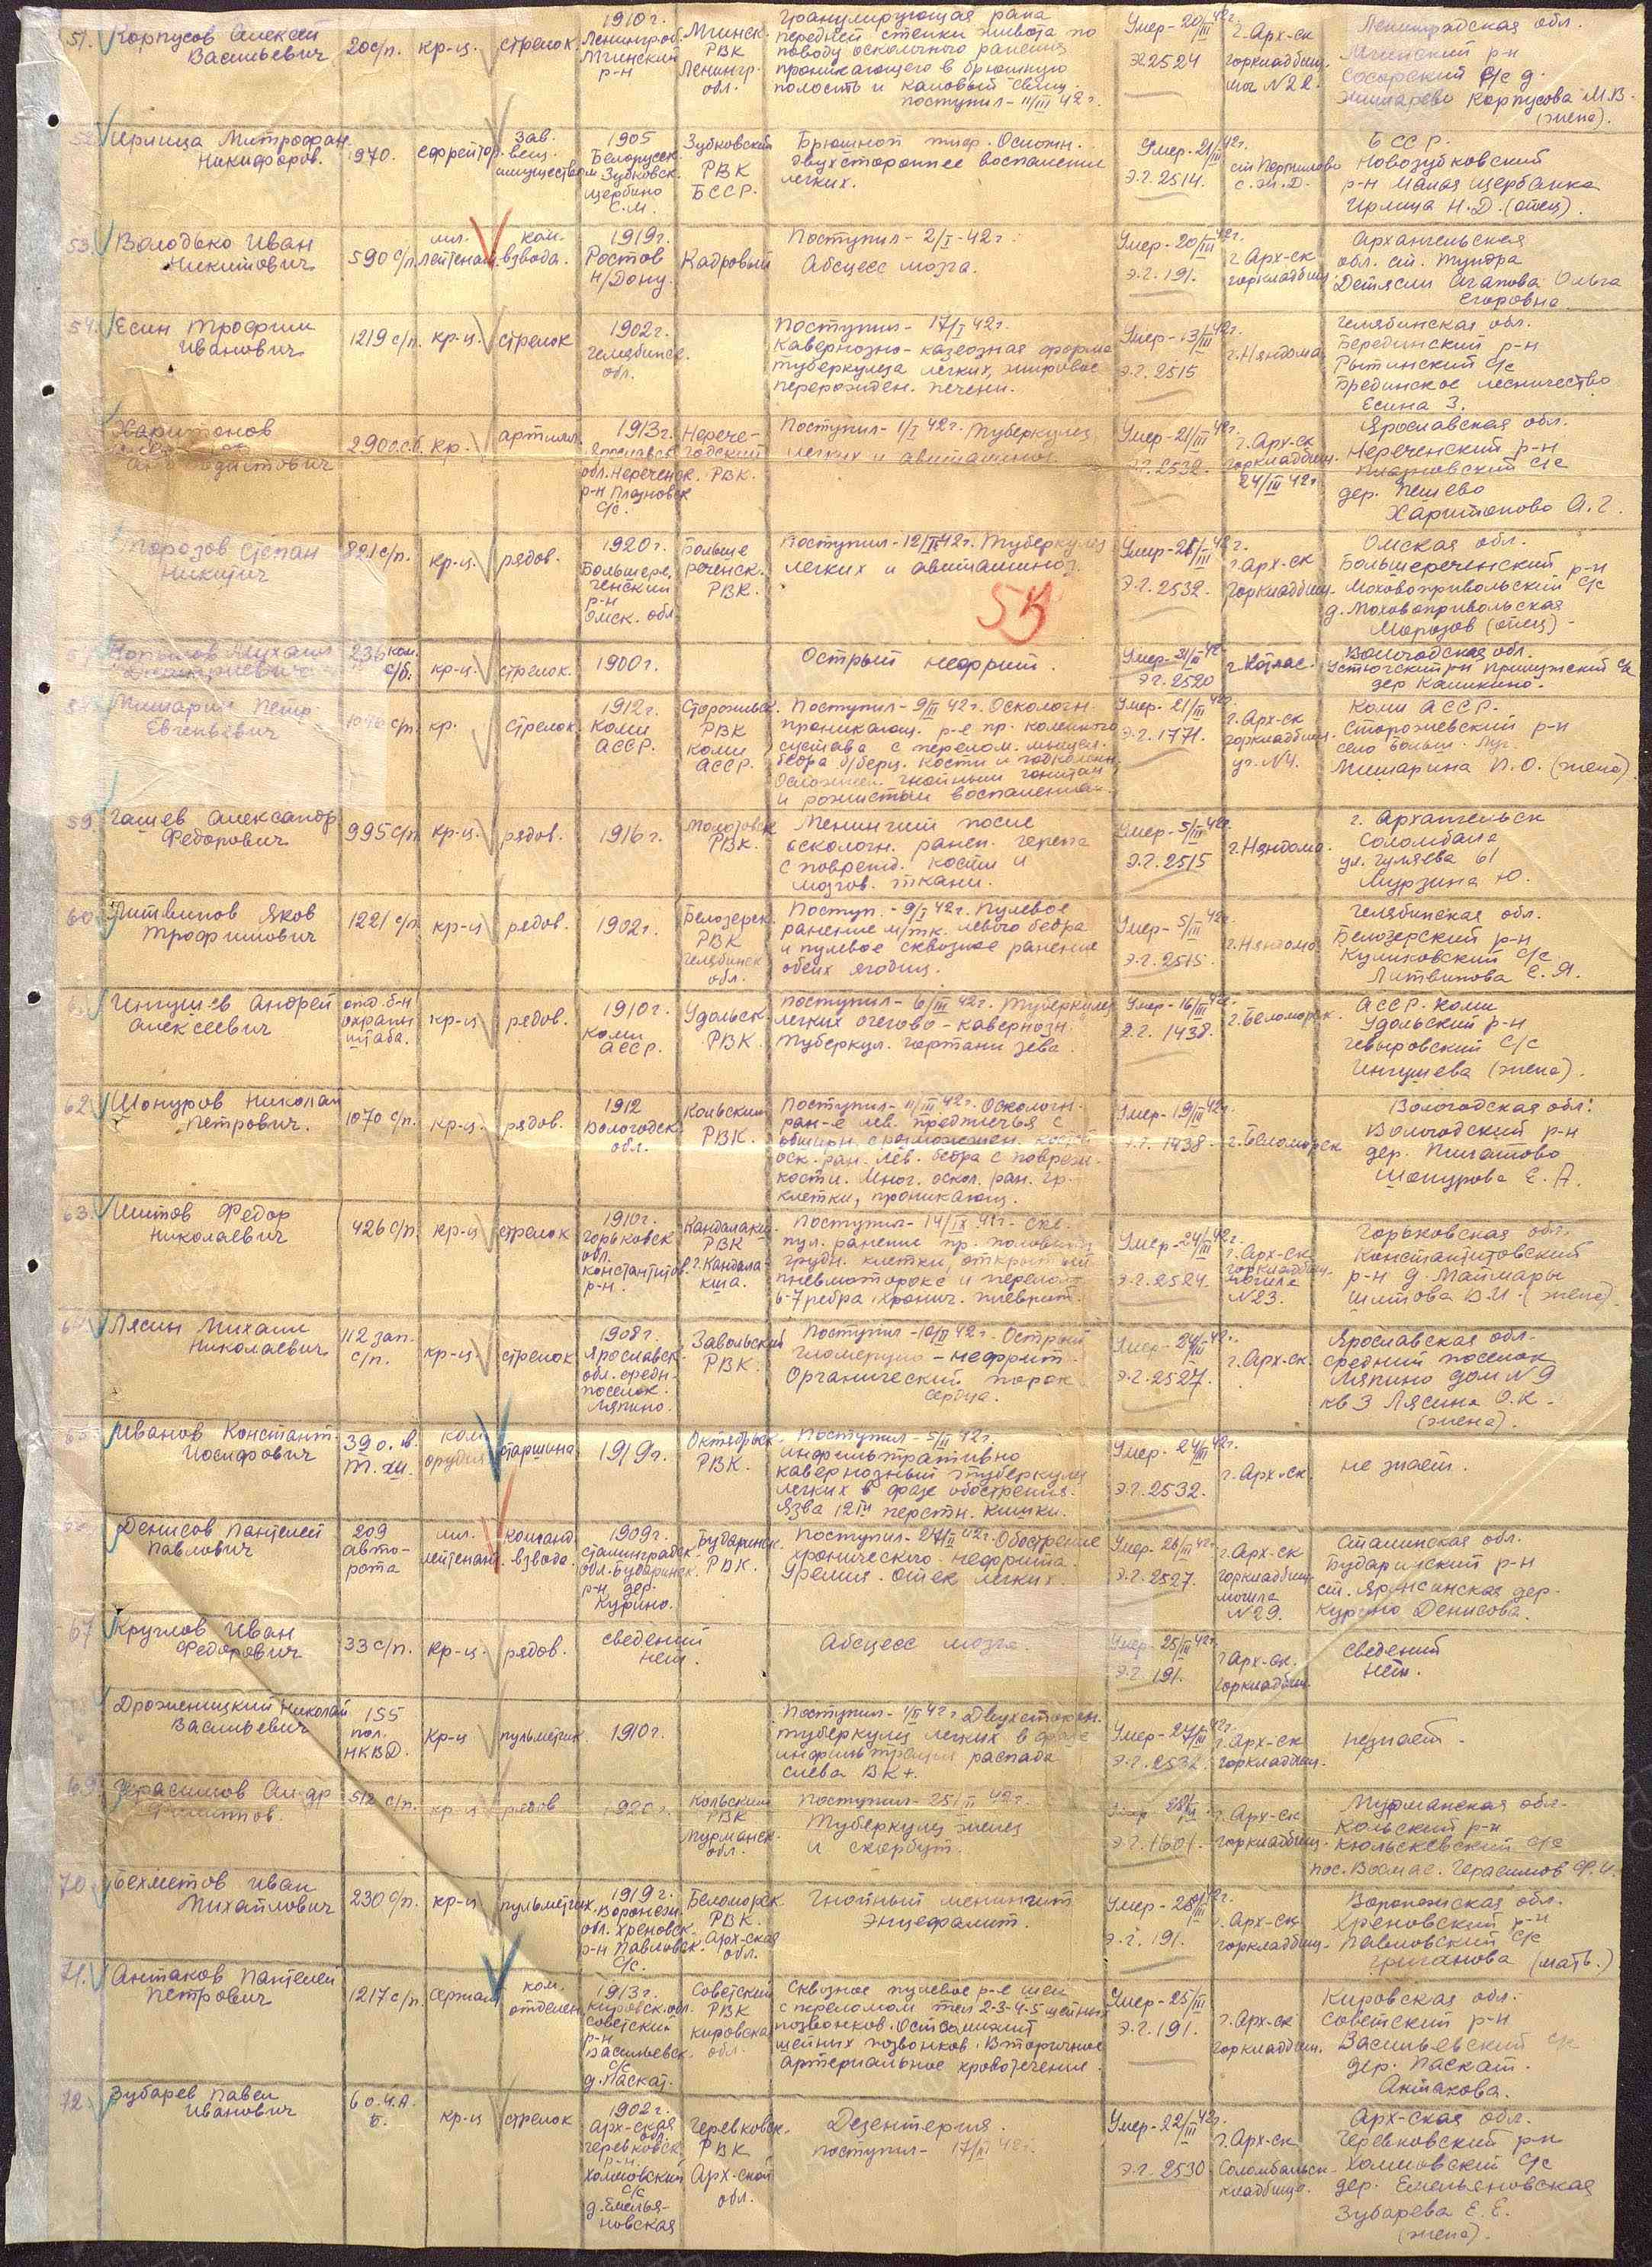 51. Корпусов Алексей
Васильевич
20 с/п.
кр-ц.
стрелок
1910 г.
Ленингр. об.
Мгинский
р-н
Мгинск.
РВК
Ленингр.
обл.
Гранулирующая рана
передней стенки живота по
поводу осколочного ранения
проникающего в брюшную
полость и каловый свищ.
поступил - 11/III 42 г.
Умер - 20/III 42 г.
ЭГ 2524
г. Арх-ск
горкладбищ.
мог. N 22.
Ленинградская обл.
Мгинский р-н
с/с д.
Корпусова М.В.
(жена).
Митрофан
Никифоров.
970.
ефрейтор
зав.
вещ.
имуществом
1905
Белорусск.
Зубковск.
Щербино
С.М.
Зубковский
РВК
БССР.
Брюшной тиф. Осложн.
двухстороннее воспаление
легких.
Умер - 21/III 42 г.
Э.Г. 2514.
БССР.
Новозубковский
р-н Малая Щербинка
Ирлица Н.Д. (отец).
53. Володько Иван
Никитович
590 с/п.
мл.
лейтенант
ком.
взвода.
1919 г.
Ростов
н/Дону.
Кадровый
Поступил - 2/I - 42 г.
Абсцесс мозга.
Умер - 20/III 42 г.
Э.Г. 191.
г. Арх-ск
горкладбищ.
Архангельская
обл. ст. Тундра
Детясли Агапова Ольга
Егоровна
54. Есин Трофим
Иванович
1219 с/п.
кр-ц.
стрелок
1902 г.
Челябинск.
обл.
Поступил - 17/I 42 г.
Кавернозно - казеозная форма
туберкулеза легких, жировое
перерожден. печени.
Умер - 13/III 42 г.
Э.Г. 2515
г. Няндома
Челябинская обл.
Берединский р-н
Рытинский с/с
Брединское лесничество
Есина З.
Харитонов
290 о.с.б.
кр.
артилл.
1913 г.
Ярославск.
обл. Нереченск.
р-н
с/с.
Нерече-
годский
РВК.
Поступил - 1/I 42 г. Туберкулез
легких и авитаминоз.
Умер - 21/III 42 г.
Э.Г. 2532.
г. Арх-ск
горкладбищ.
24/III 42 г.
Ярославская обл.
Нереченский р-н
с/с
дер. Пешево
Харитоново А.Г.
Морозов Степан
Никитич
821 с/п.
кр-ц
рядов.
1920 г.
Большере-
ченский
р-н
Омск. обл.
Больше
реченск.
РВК.
Поступил - 12/II 42 г. Туберкулез
легких и авитаминоз.
Умер - 21/III 42 г.
Э.Г. 2532.
г. Арх-ск
горкладбищ.
Омская обл.
Большереченский р-н
Моховопривольский с/с
д. Моховопривольская
Морозов (отец) -
Михаил
236 ком.
с/б.
кр-ц
стрелок.
1900 г.
Острый нефрит.
Э.Г. 2520
г. Котлас.
Вологодская обл.
Устюгский р-н
дер Каликино.
Мишарин Петр
Евгеньевич
с/п.
кр.
стрелок
1912 г.
Коми
АССР.
Сторожевск.
РВК
Коми
АССР.
Поступил - 9/II 42 г. Осколочн.
проникающ. р-е пр. коленного
сустава с перелом. мыщел.
бедра б/берц. кости и
Осложнен. гнойным гонитом
и рожистым воспалением.
Умер - 21/III 42 г.
Э.Г. 1771.
г. Арх-ск
горкладбищ.
уч. N4.
Коми АССР.
Сторожевский р-н
село Больш. Луг.
Мишарина П.О. (жена).
59. Гашев Александр
Федорович
995 с/п
кр-ц.
рядов.
1916 г.
Молотовск
РВК.
Менингит после
осколочн. ранен. черепа
с поврежд. кости и
мозгов. ткани.
Умер - 5/III 42 г.
Э.Г. 2515
г. Няндома.
г. Архангельск
Соломбала
ул. Гуляева 61
Мурзина Ю.
60. Литвинов Яков
Трофимович
1221 с/п
кр-ц
рядов.
1902 г.
Белозерск.
РВК
Челябинск
обл.
Поступ. - 9/I 42 г. Пулевое
ранение м/тк. левого бедра
и пулевое сквозное ранение
обеих ягодиц.
Умер - 5/III 42 г.
Э.Г. 2515.
г. Няндома
Челябинская обл.
Белозерский р-н
Куликовский с/с
Литвинова Е.Я.
61. Ингушев Андрей
Алексеевич
отд. б-н
охраны
штаба.
кр-ц
рядов.
1910 г.
Коми
АССР.
Удольск.
РВК.
Поступил - 6/III 42 г. Туберкулез
легких очагово - кавернозн.
Туберкул. гортани зева.
Умер - 16/III 42 г.
Э.Г. 1438.
г. Беломорск.
АССР. Коми
Удольский р-н
с/с
Ингушева (жена).
62. Шонуров Николай
Петрович.
1070 с/п
кр-ц.
рядов.
1912
Вологодск.
обл.
Кольский
РВК.
Поступил - 11/III 42 г. Осколочн.
ран-е лев. предплечья с
обширн. размозжен. костей
оск. ран. лев. бедра с поврежд.
кости. Множ. оскол. ран. гр.
клетки, проникающ.
Умер - 19/III 42 г.
Э.Г. 1438.
г. Беломорск
Вологодская обл.
Вологодский р-н
дер.
Шонурова Е.А.
63. Шитов Федор
Николаевич
426 с/п
кр-ц
стрелок
1910 г.
Горьковск
обл.
Константинов.
р-н.
Кандалакш.
РВК
г. Кандала-
кша.
Поступил - 14/IX 41 г. Скв.
пул. ранение пр. половины
грудн. клетки, открытый
пневмоторакс и перелом
6-7 ребра. Хронич. плеврит.
Умер - 24/III 42 г.
Э.Г. 2524.
г. Арх-ск
горкладбищ.
могила
N 23.
Горьковская обл.
Константитовский
р-н д. Маймары
Шитова В.И. (жена)
64. Лясин Михаил
Николаевич
112 зап.
с/п.
кр-ц
стрелок
1908 г.
Ярославск.
обл. средн.
поселок.
Ляпино.
Завольский
РВК.
Поступил - 10/II 42 г. Острый
гломеруло - нефрит.
Органический порок
сердца.
Умер - 24/III 42 г.
Э.Г. 2527.
г. Арх-ск.
Ярославская обл.
средний поселок
Ляпино дом N 9
кв 3 Лясина О.К.
(жена).
65. Иванов Констант.
Иосифович
ком.
орудия
старшина
1919 г.
Октябрьск.
РВК.
Поступил - 5/II 42 г.
инфильтративно
кавернозный туберкулез
легких в фазе обострения.
Язва 12ти перстн. кишки.
Умер - 24/III 42 г.
Э.Г. 2532.
г. Арх-ск.
не знает.
Денисов Пантелей
Павлович
209
авто-
рота
мл.
лейтенант
команд.
взвода.
1909 г.
Сталинградск.
обл. Бударинск.
р-н. дер.
Курино.
Бударинск.
РВК.
Поступил - 27/II 42 г. Обострение
хронического нефрита.
Уремия. Отек легких.
Умер - 26/III 42 г.
Э.Г. 2527.
г. Арх-ск
горкладбищ.
могила
N 29.
Сталинская обл.
Бударинский р-н
дер.
Курино Денисова.
67 Круглов Иван
Федорович
33 с/п.
кр-ц
рядов.
сведений
нет.
Абсцесс мозга.
Умер - 25/III 42 г.
Э.Г. 191.
г. Арх-ск.
горкладбищ.
сведений
нет.
Дроженицкий Николай
Васильевич
155
пол.
НКВД.
кр-ц
пулеметчик.
1910 г.
Поступил - 1/II 42 г. Двухсторон.
туберкулез легких в фазе
инфильтрации распада
слева ВК+.
Умер - 27/III 42 г.
Э.Г. 2532.
г. Арх-ск
горкладбищ.
незнает.
69. Герасимов Ал-др
512 с/п.
кр-ц
рядов
1920 г.
Кольский
РВК
Мурманск.
обл.
Поступил - 25/II 42 г.
Туберкулез желез
и скорбут.
Э.Г. 1601.
г. Арх-ск
горкладбищ.
Мурманская обл.
Кольский р-н
с/с
Герасимов Ф.И.
70. Бехметов Иван
Михайлович
230 с/п.
кр-ц
пулеметчик
1919 г.
Воронеж.
обл. Хреновск.
р-н Павловск.
с/с.
Беломорск
РВК.
Арх-ская
обл.
Гнойный менингит
энцефалит.
Умер - 28/III 42 г.
Э.Г. 191.
г. Арх-ск
горкладбищ.
Воронежская обл.
Хреновский р-н
Павловский с/с
(мать.)
71. Антаков Пантелей
Петрович
1217 с/п.
сержант
ком.
отделен.
1913 г.
Кировск. обл.
Советский
р-н
Васильевск.
с/с
д. Паскат.
Советский
РВК
Кировская
обл.
Сквозное пулевое р-е шеи
с переломом тел 2-3-4-5 шейных
позвонков. Остеомиелит
шейных позвонков. Вторичное
артериальное кровотечение.
Умер - 25/III
Э.Г. 191.
г. Арх-ск
горкладбищ.
Кировская обл.
Советский р-н
Васильевский с/с
дер. Паскат.
Антакова.
72. Зубарев Павел
Иванович
кр-ц
стрелок
1902 г.
Арх-ская
обл.
Черевковск.
р-н.
Холмовский
с/с
д. Емелья-
новская
Черевковск.
РВК
Арх-ской
обл.
Дезентерия.
поступил - 17/III 42 г.
Умер - 22/III 42 г.
Э.Г. 2530
г. Арх-ск
Соломбальск.
кладбище.
Арх-ская обл.
Черевковский р-н
Холмовский с/с
дер. Емельяновская
Зубарева Е.Е.
(жена).